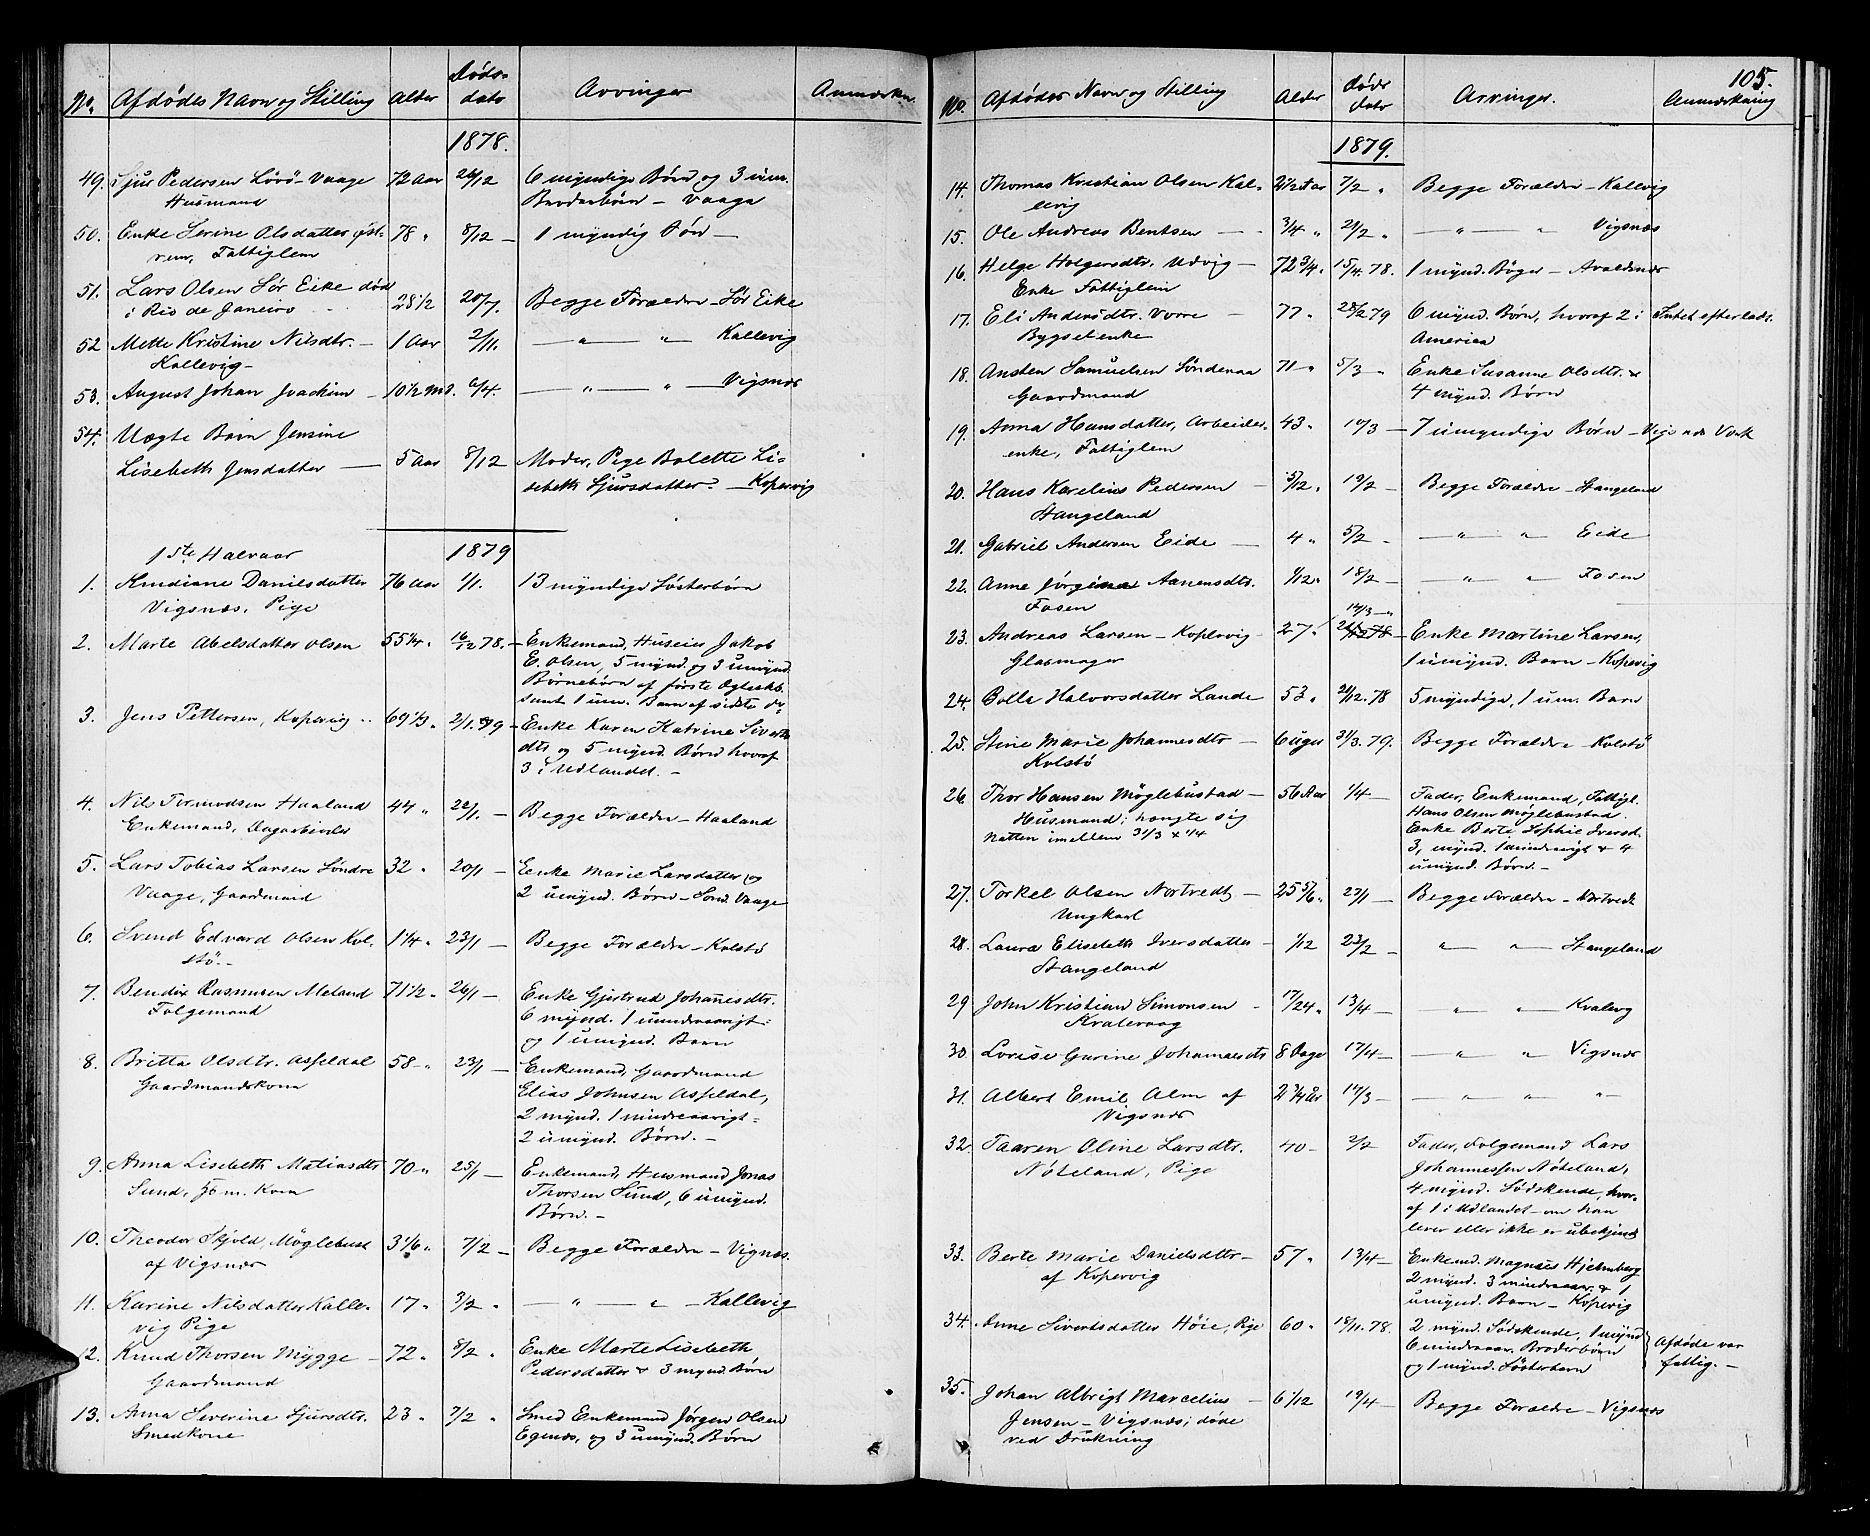 No. Afdödes Navn og Stilling Alder Döds-
dato Arvinger Anmærkn.
1878.
49. Sjur Pedersen Lövö-Vaage 72 Aar 26/12 6 myndige Börn og 3 um.
Husmand Barnebörn - Vaage
50. Enke Serine Olsdatter Öst- 78 " 8/12 - 1 myndig Sön -
rem, Fattiglem
51. Lars Olsen Sör Eike död 28 1/2 20/7. Begge Forældre - Sör Eike
i Rio de Janeiro
52 Mette Kristine Nilsdtr. - 1 Aar 2/11. - " - " Kallevig
Kallevig -
53. August Johan Joachim - 10 1/2 Md. 6/4. - " - " - Vigsnæs
54. Uægte Barn Jensine
Lisebeth Jensdatter - 5 Aar 8/12 Moder, Pige Bolette Li-
sebeth Sjursdatter. - Kopervig
1ste Halvaar 1879
1. Knudiane Danielsdatter 76 Aar 1/1. 13 myndige Sösterbörn
Vigsnæs, Pige
2. Marte Abelsdatter Olsen 55 1/4 " 16/12 78. - Enkemand, Huseier Jakob
E. Olsen, 5 mynd. og 3 umynd.
Börnebörn af förste Ægteskb.
samt 1 um. Barn af sidste do
3. Jens Pettersen, Kopervig 69 1/3 " 2/1. 79 - Enke Karen Katrine Sivert
dtr og 5 mynd. Börn hvoraf
3 i Udlandet. -
4. Nils Tormodsen Haaland 44 " 22/1. - Begge Forældre - Haaland
Enkemand, Dagarbeider
5. Lars Tobias Larsen Söndre 32 " 20/1 - Enke Marie Larsdatter og
Vaage, Gaardmand 2 umynd. Börn - Sönd. Vaage
6. Svend Edvard Olsen Kol- 1 1/4 " 23/1 - Begge Forældre - Kolstö
stö. -
7. Bendix Rasmusen Meland 71 1/2 " 26/1 - Enke Gjertrud Johannesdtr.
Folgemand 6 mynd. 1 umindreaarigt
og 1 umynd. Barn
8. Britta Olsdtr. Asseldal 58 - " 23/1 - Enkemand, Gaardmand
Gaardmandskone Elias Johnsen Asseldal,
2 mynd. 1 mindreaarigt -
2 umynd. Börn. -
9. Anna Lisebeth Matiasdtr 70 " 25/1 - Enkemand, Husmand Jonas
Sund, Hsm. Kone Thorsen Sund, 6 umynd.
Börn. -
10. Theodor Skjold, Möglebust 3 1/6 " 7/2 - Begge Forældre - Vignæs.
af Vigsnæs
11. Karine Nilsdatter Kalle- 17 " 3/2 " - " - " - Kallevig
vig Pige
12. Knud Thorsen Mygge - 72 " 8/2 " Enke Marte Lisebeth
Gaardmand Pedersdatter & 3 mynd. Börn
13. Anna Severine Sjursdtr. 23 " 7/2 " Smed Enkemand Jörgen Olsen
Smedkone Egenæs, og 3 umynd. Börn
105.
No. Afdödes Navn og Stilling Alder Döds
Dato Arvinger. Anmærkning
1879.
14. Thomas Kristian Olsen Kal- 2 1/2 Aar 7/2 " Begge Forældre - Kallevig
levig
15. Ole Andreas Bentsen - 3/4 " 21/2 " - " - " Vigsnæs
16. Helge Holgersdtr. Udvig - 72 3/4 " 15/4. 78. 1 mynd. Söger - Avaldsnæs
Enke Fattiglem
17. Eli Andersdtr. Vorre - 77 " 25/2 79 6 mynd. Börn, hvoraf 2 i Intet efterladt.
Bygselenke America
18. Ansten Samuelsen Söndenaa 71 " 5/3 " Enke Susanne Olsdtr. &
Gaardmand 4 mynd. Börn
19. Anna Hansdatter, Arbeider- 43 " 10/3 - 7 umyndige Börn - Vigsnæs Værk
enke, Fattiglem
20. Hans Karelius Pedersen - 5/12 " 19/2 - Begge Forældre - Stangeland
Stangeland
21. Gabriel Andersen Eide - 4 " 5/2 - - " - " Eide
22. Anne Jörgine Aanensdtr. 1/12 " 18/2 - " - " - Fosen
Fosen
23. Andreas Larsen - Kopervig - 27 " 14/3 - " Enke Martine Larsen,
Glasmager 1 umynd. Barn - Kopervig
24. Bolla Halvorsdatter Lande 53 " 21/12. 78 5 myndige, 1 um. Barn
25. Stine Marie Johannesdtr - 6 Uger 31/3. 79. Begge Forældre - Kolstö
Kolstö
26. Thor Hansen Möglebustad - 56 Aar 1/4 - Fader, Enkemand, Fattigl.
Husmand; hængte sig Hans Olsen Möglebustad.
Natten imellem 31/3 & 1/4 Enke Berte Sophie Iversd.
3, mynd. 1 mindreaarigt & 4
umynd. Börn. -
27. Torkel Olsen Nortvedt - 25 5/6 " 27/1 - Begge Forældre - Nortvedt
Ungkarl
28. Laura Elisebeth Iversdatter - 1/12 23/2 - " - " - Stangeland
Stangeland
29 John Kristian Simonsen - 17/24 " 13/4 - " - " - Kvalevg
Kvalevaag
30. Lovise Gurine Johannesdtr 8 Dage 17/4 - - " - Vigsnæs
31. Albert Emil Alm af 2 3/4 År 17/3 - - " - " - " -
Vigsnæs
32. Taaren Oline Larsdtr. 40 - 2/2 Fader, Folgemand Lars
Nöteland, Pige Johannessen Nöteland,
4 mynd. Södskende, hvor-
af 1 i Udlandet - om han
lever eller ikke er ubekjendt
33. Berte Marie Danielsdtr - 57 " 13/4 - Enkemd. Magnus Hjelmberg
af Kopervig 2 mynd. 3 mindreaar. & 1
umynd. Barn - Kopervig
34. Anne Sivertsdatter Höie, Pige 60 " 18/11. 78. 2 mynd. Södskende, 1 mynd
6 mindreaar. Broderbörn Afdöde var
og 1 mynd. Sösterbarn fattig. -
35. Johan Albrigt Marcelius - 6 1/12 19/4 - Begge Forældre - Vigsnæs
Jensen - Vigsnæs; döde
ved Drukning